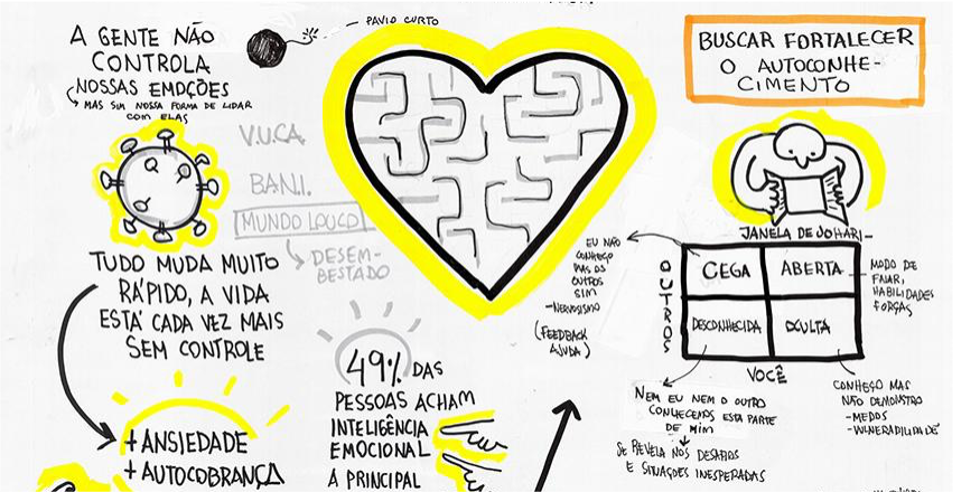 A GENTE NÃO
CONTROLA
NOSSAS EMOÇÕES
MAS SIM NOSSA FORMA DE LIDAR
COM ELAS
PAVIO CURTO
V.U.CA.
BANI.
MUNDO LOUCO
DESEM-
BESTADO
TUDO MUDA MUITO
RÁPIDO, A VIDA
ESTÁ CADA VEZ MAIS
SEM CONTROLE
+ ANSIEDADE
+ AUTOCOBRANÇA
49% DAS
PESSOAS ACHAM
INTELIGÊNCIA
EMOCIONAL
A PRINCIPAL
BUSCAR FORTALECER
O AUTOCONHE-
CIMENTO
JANELA DE JOHARI-
EU NÃO
CONHEÇO
MAS OS
OUTROS
SIM
- NERVOSISMO
(FEEDBACK
AJUDA)
OUTROS
CEGA
ABERTA
DESCONHECIDA
OCULTA
VOCÊ
MODO DE
FALAR,
HABILIDADES
FORÇAS
NEM EU NEM O OUTRO
CONHECEMOS ESTA PARTE
DE MIM
SE REVELA NOS DESAFIOS
E SITUAÇÕES INESPERADAS
CONHEÇO MAS
NÃO DEMONSTRO
- MEDOS
- VUNERABILIDADE